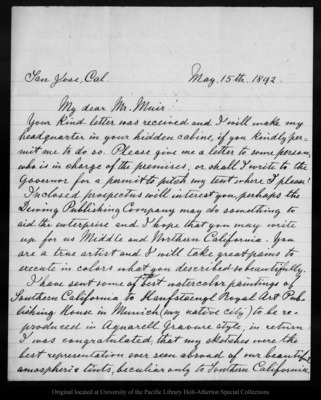 San Jose, Cal. May, 15th, 1892.
My dear Mr. Muir
Your kind letter was received and I will make my
headquarter in your hidden cabine, if you kindly per-
mit me to do so. Please give me a letter to some person,
who is in charge of the premises, or shall I write to the
Governor for a permit to pitch my tent where I please?
Inclosed prospectus will interest you, perhaps the
Dewing Publishing Company may do something to
aid the enterprise and I hope that you may write
up for us Meddle and Northern California. You
are a true artist and I will take great pains to
execute in colors what you described so beautifully.
I have sent some of the best watercolor paintings of
Southern California to Hanfstaengl Royal Art Pub-
lishing House in Munich (my native city) to be re-
produced in Aquarell Gravure style, in return
I was congratulated, that my sketches were the
best representation ever seen abroad of our beautiful
amospheric tints, beculiar only to Southern California.
Original located at University of the Pacific Library Holt-Atherton Special Collections